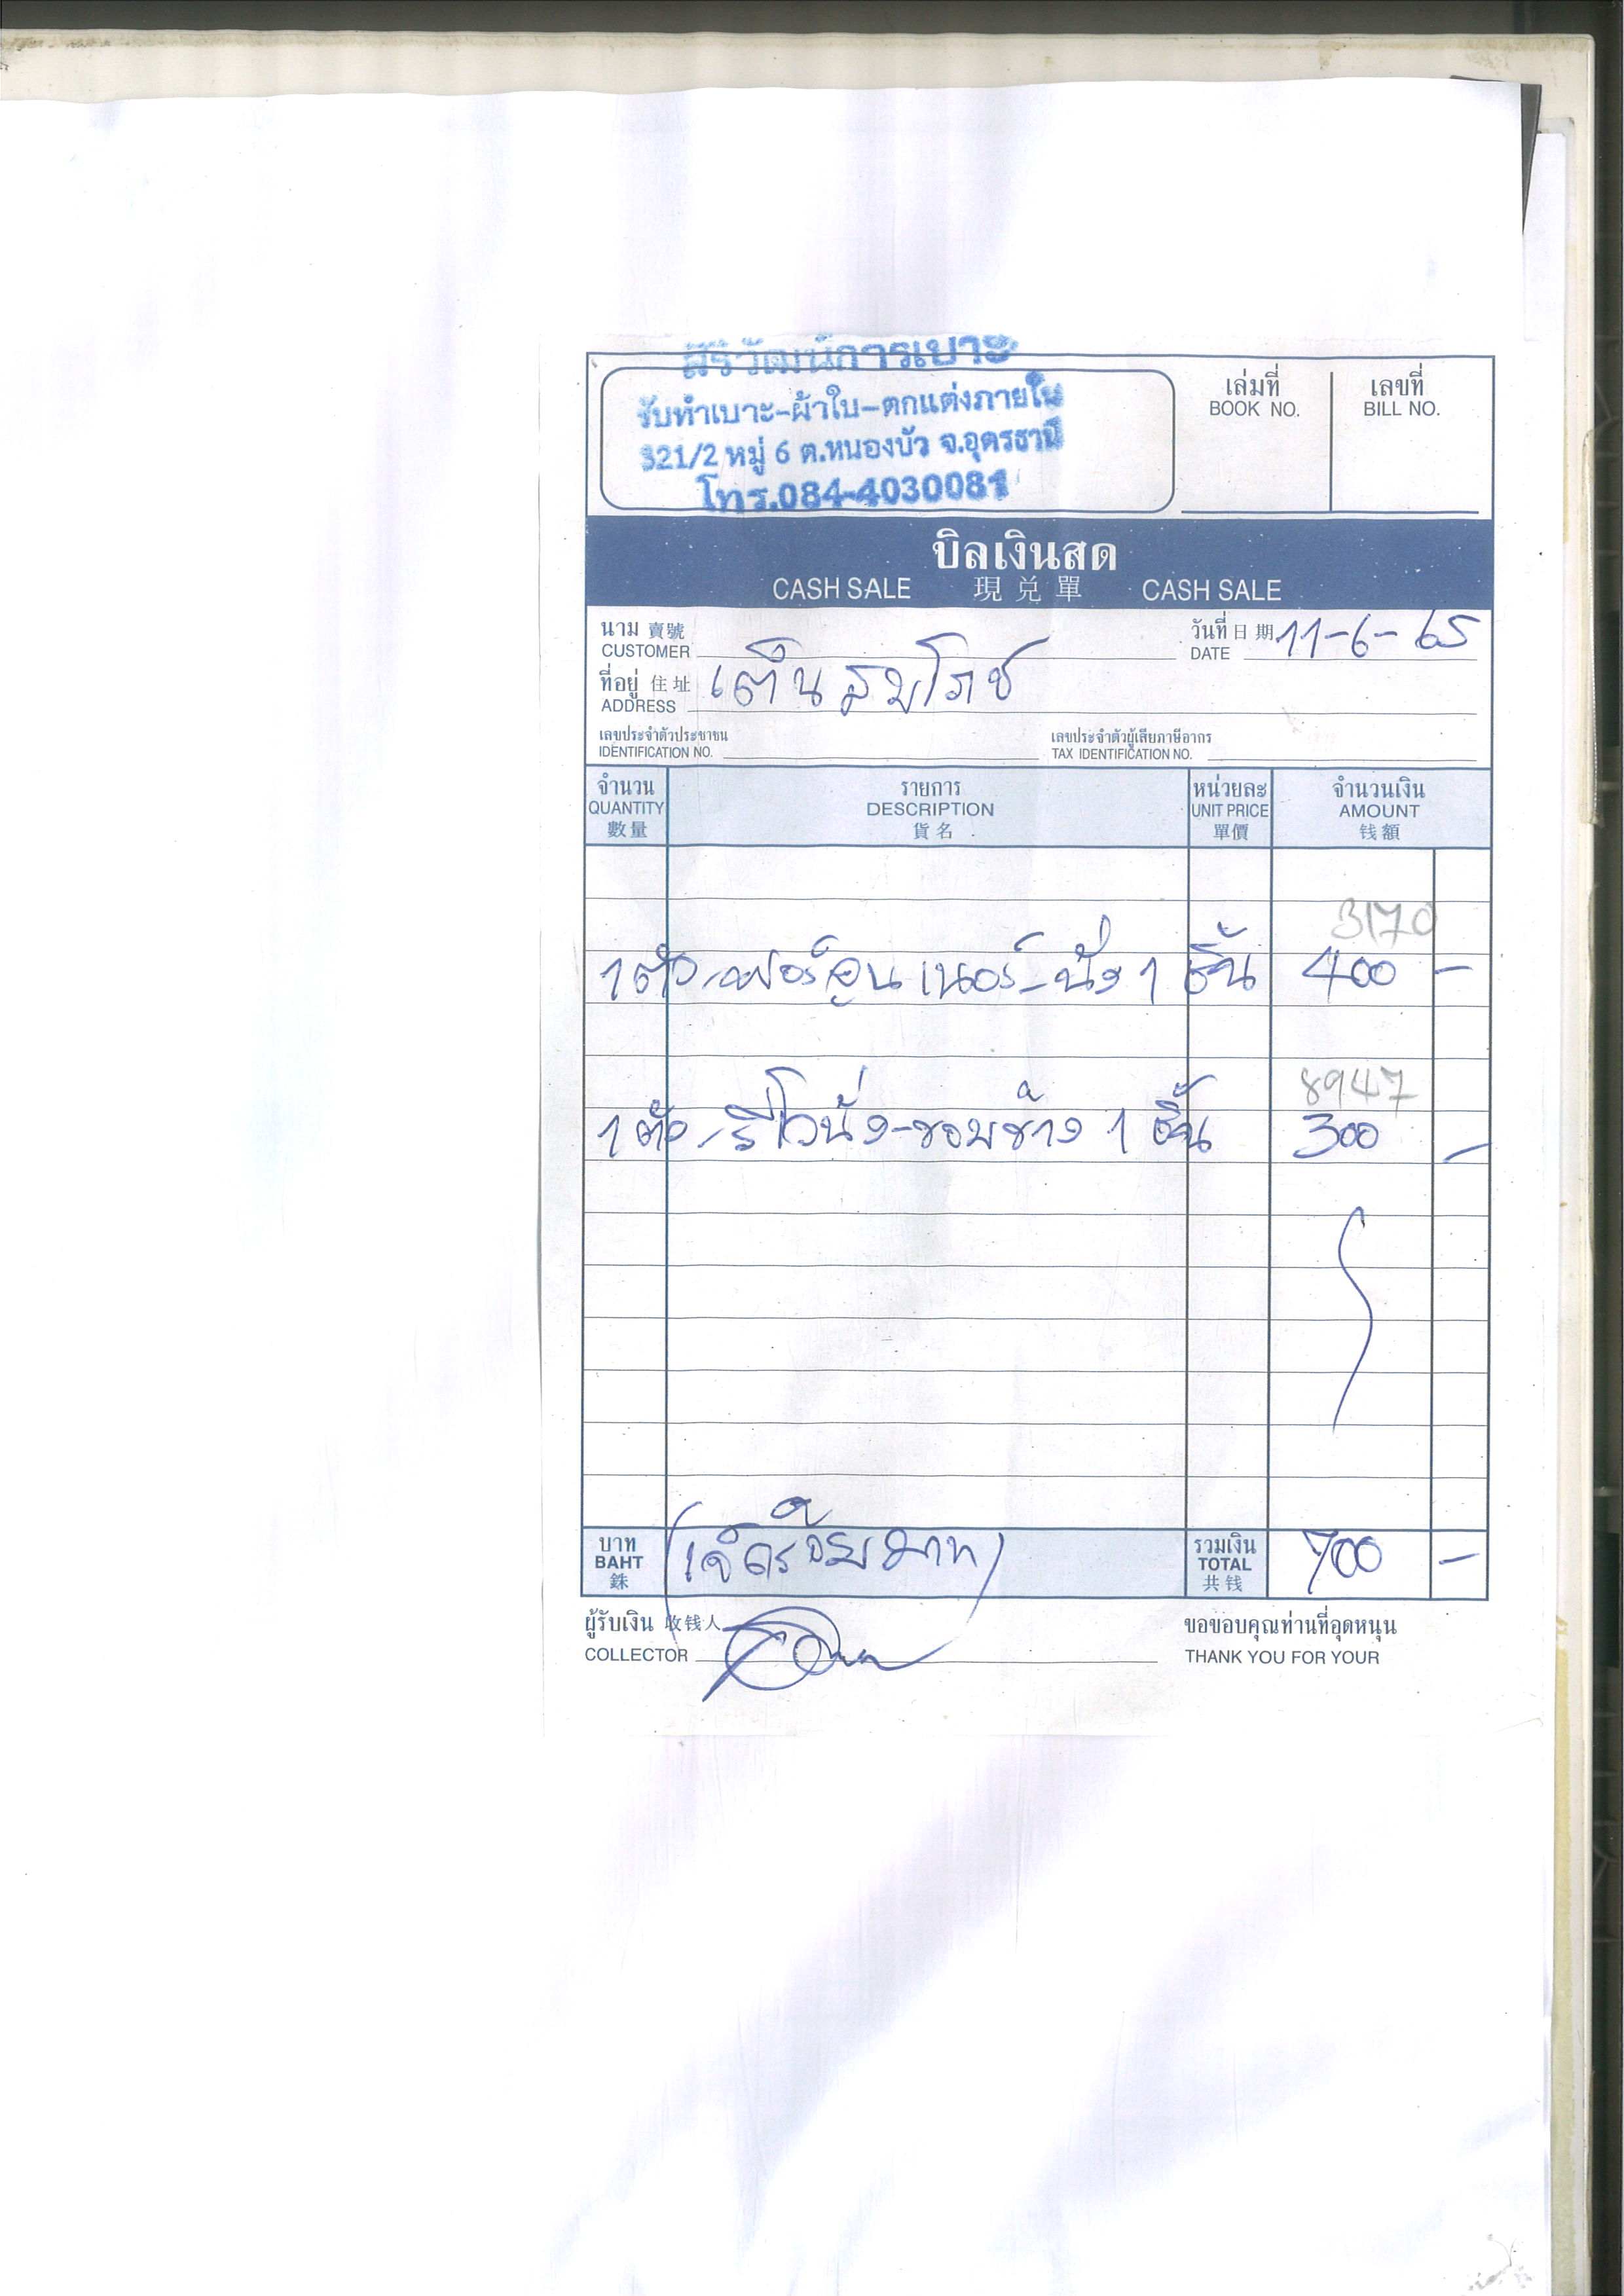 สิริวัฒน์การเบาะ
รับทำเบาะ-ผ้าใบ-ตกแต่งภายใน
321/2 หมู่ 6 ต.หนองบัว จ.อุดรธานี
โทร.084-4030081
เล่มที่ เลขที่
BOOK NO. BILL NO.
บิลเงินสด
CASH SALE 現兑單 CASH SALE
นาม 賣號 วันที่ 日期 11-6-65
CUSTOMER DATE
ที่อยู่ 住址 เต็น
ADDRESS
เลขประจำตัวประชาชน เลขประจำตัวผู้เสียภาษีอากร
IDENTIFICATION NO. TAX IDENTIFICATION NO.
จำนวน รายการ หน่วยละ จำนวนเงิน
QUANTITY DESCRIPTION UNIT PRICE AMOUNT
數量 貨名 單價 钱額
3170
1 ตัว ฟอร์จูนเนอร์-นั่ง 1 ชิ้น 400 -
8947
1 ตัว รีโว่นั่ง-ขอบข้าง 1 ชิ้น 300 -
บาท (เจ็ดร้อยบาท) รวมเงิน 700 -
BAHT TOTAL
銖 共钱
ผู้รับเงิน 收钱人 ขอขอบคุณท่านที่อุดหนุน
COLLECTOR THANK YOU FOR YOUR